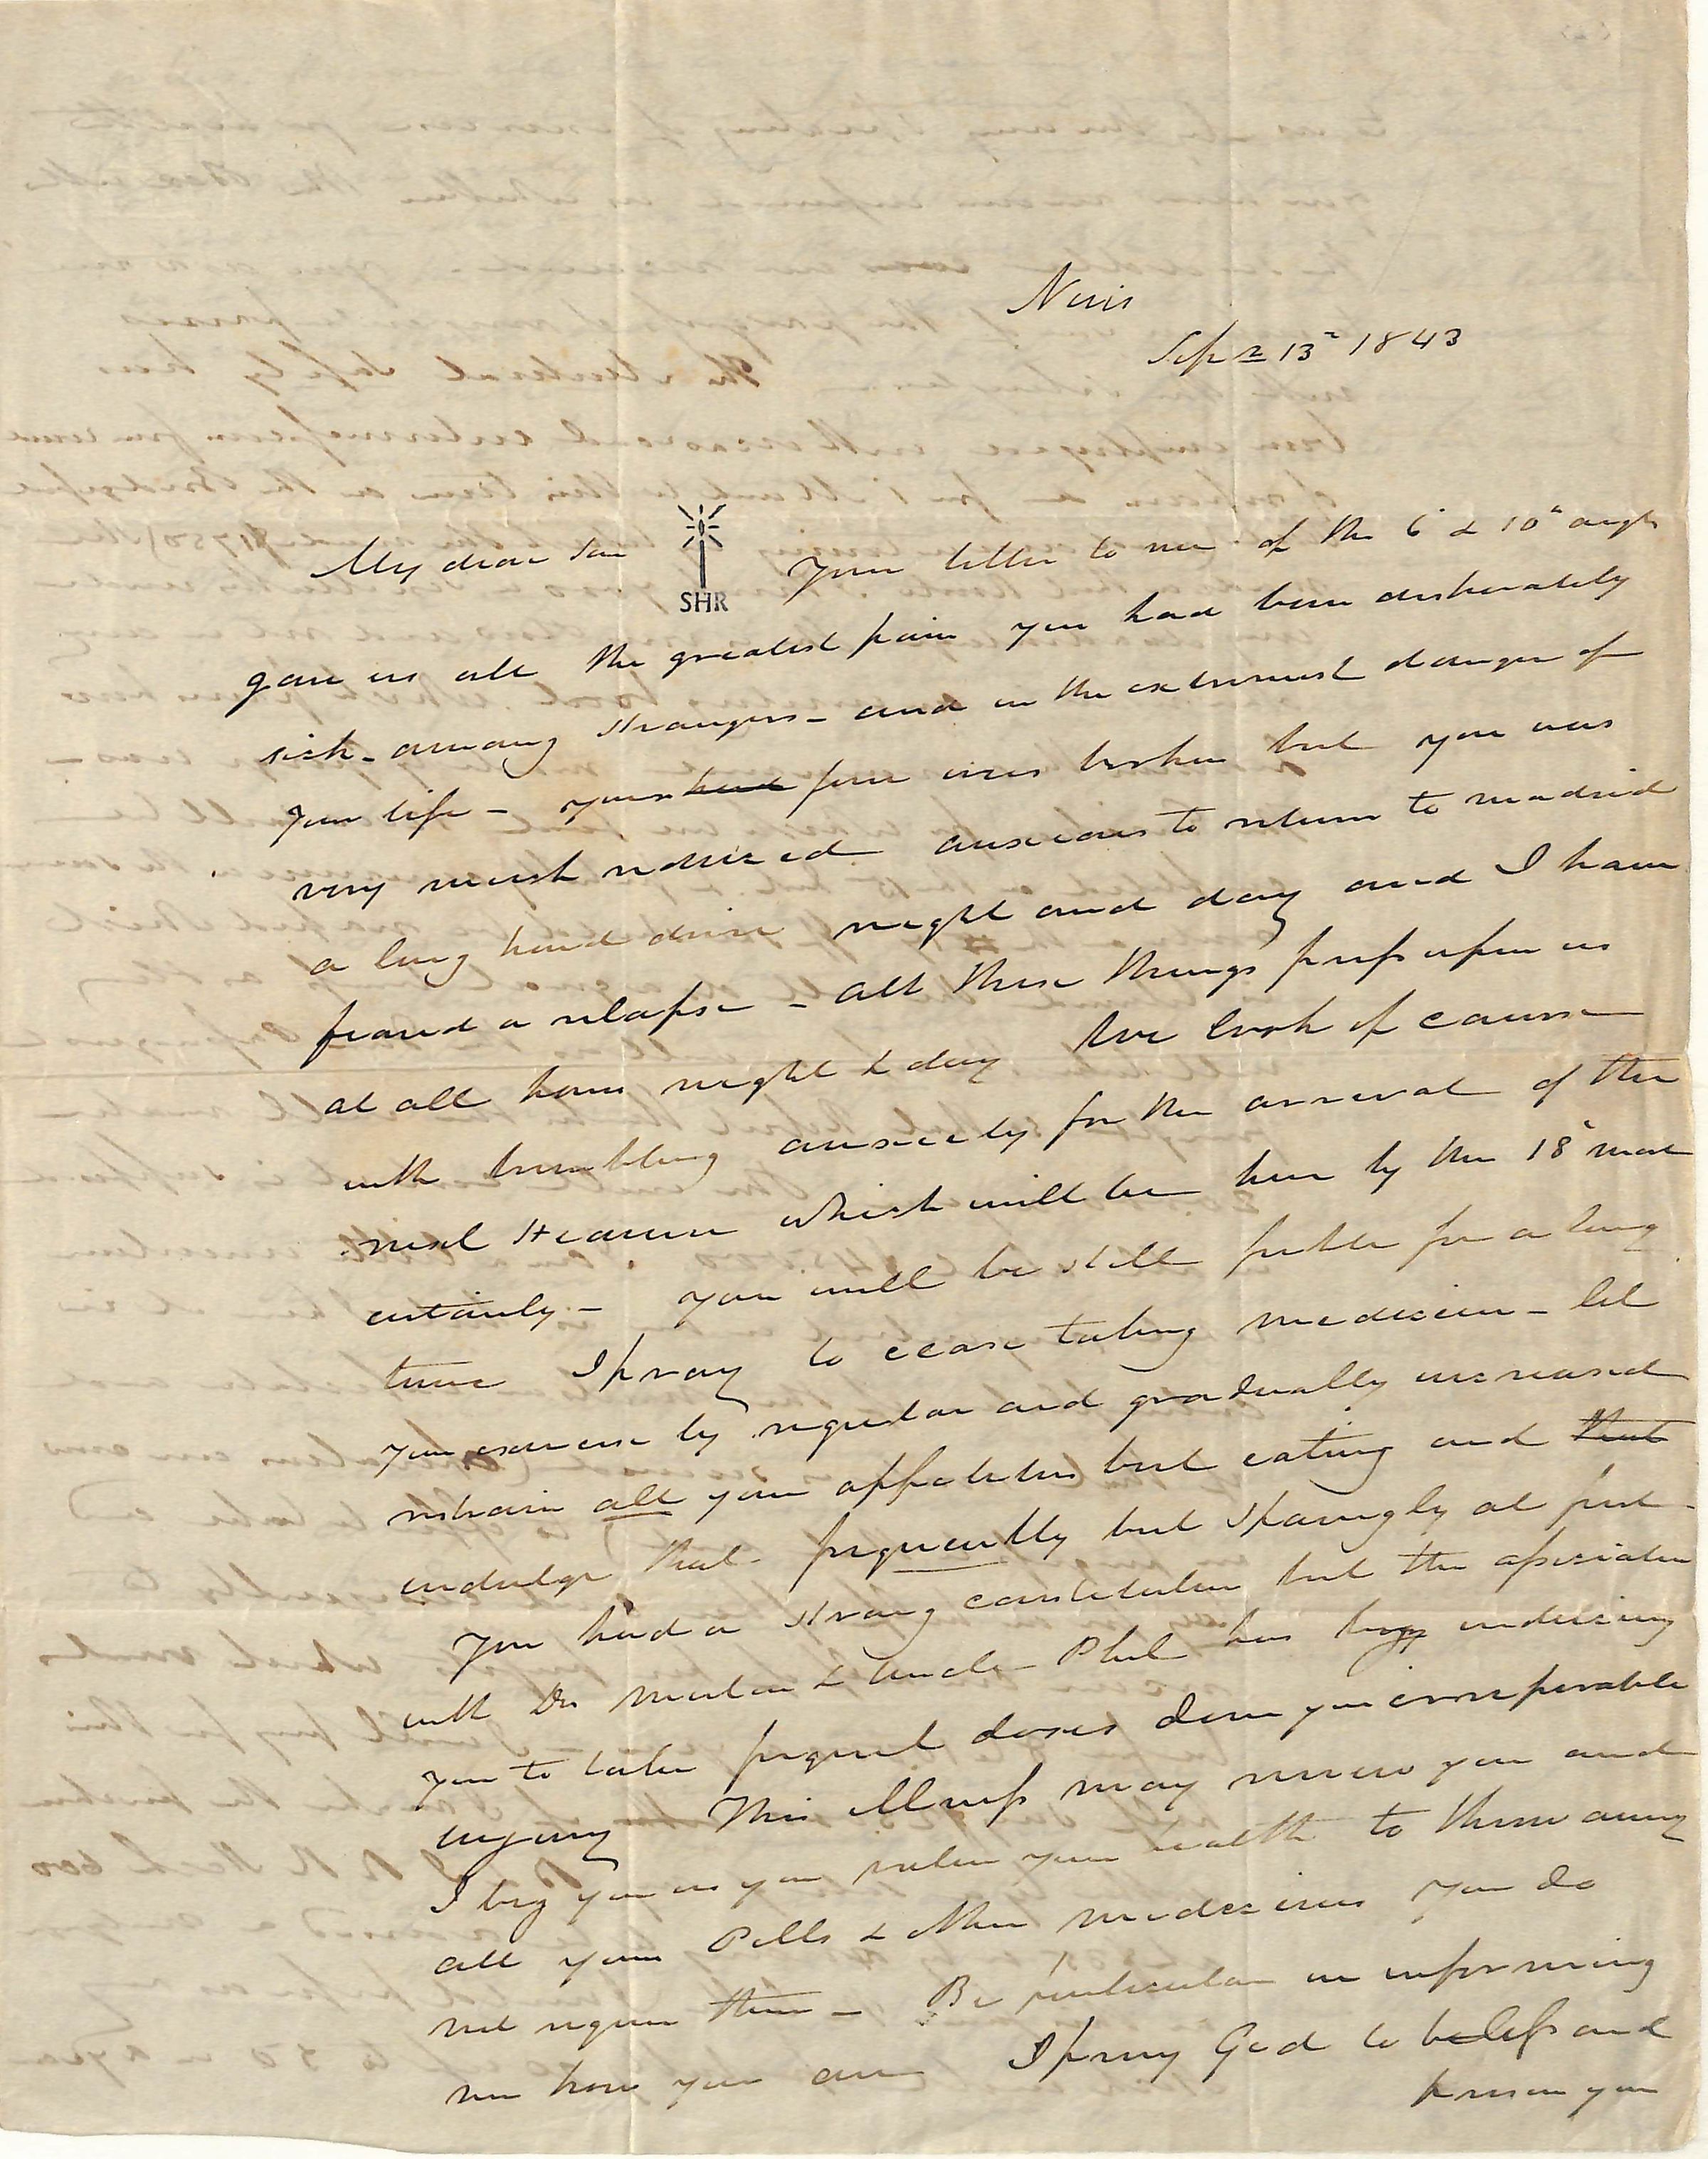 Nevis
Sep 13 1843
My dear Son
SHR
Your letter to me of the 6 & 10 augt
gave us all the greatest pain you had been desperately
sick - among strangers - and in the extremest danger of
your life - your fever was broken but you was
very much reduced anxious to return to madrid
a long hard drive night and day and I have
feared a relapse - all these things press upon us
at all hours night & day We look of course
with trembling anxiety for the arrival of the
next Steamer which will be here by the 18 most
certainly - you will be still feeble for a long
time I pray to cease taking medicine - let
your exercise by regular and gradually increased
restrain all your appetites but eating and that
indulge that frequently but sparingly at first -
You had a strong constitution but the association
with Dr & Uncle Phil has by inducing
you to take frequent doses done you irreparable
injury This illness may renew you and
I beg you as you value your health to throw away
all your Pills & other medicines you do
not require them - Be particular in informing
me how you are I pray God to bless and
preserve you